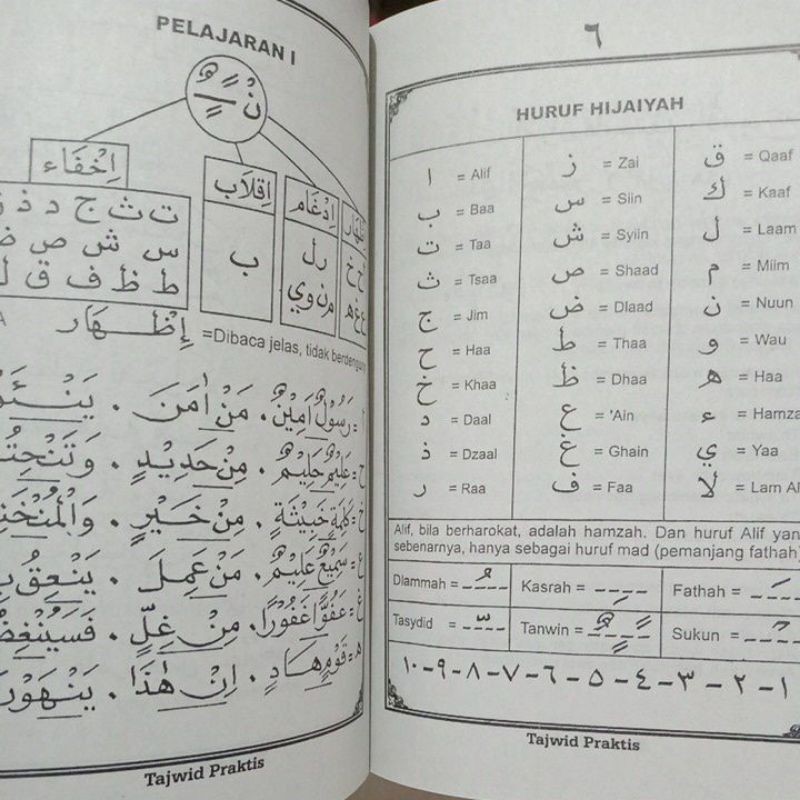 ٦
HURUF HIJAIYAH
ا = Alif ز = Zai ق = Qaaf
ب = Baa س = Siin ك = Kaaf
ت = Taa ش = Syiin ل = Laam
ث = Tsaa ص = Shaad م = Miim
ج = Jim ض = Dlaad ن = Nuun
ح = Haa ط = Thaa و = Wau
خ = Khaa ظ = Dhaa ه = Haa
د = Daal ع = 'Ain ء =
ذ = Dzaal غ = Ghain ي = Yaa
ر = Raa ف = Faa لا = Lam
Alif, bila berharokat, adalah hamzah. Dan huruf Alif
sebenarnya, hanya sebagai huruf mad (pemanjang fathah)
Dlammah = ـُ Kasrah = ـِ Fathah = ـَ
Tasydid = ـّ Tanwin = ـًـٍـٌ Sukun = ـْ
١ - ٢ - ٣ - ٤ - ٥ - ٦ - ٧ - ٨ - ٩ - ١٠
Tajwid Praktis
PELAJARAN I
نْ ـًـٍـٌ
إِظْهَار إِدْغَام إِقْلَاب إِخْفَاء
ح خ
ع غ ه
ر ل
م ن و ي
ب
ت ث ج د ذ
س ش ص
ط ظ ف ق
إِظْهَار =Dibaca jelas, tidak
أ = رَسُوْلٌ أَمِيْنٌ . مَنْ اٰمَنَ .
ح = عَلِيْمٌ حَلِيْمٌ . مِنْ حَدِيْدٍ .
خ = كَلِمَةٍ خَبِيْثَةٍ . مِنْ خَيْرٍ .
ع = سَمِيْعٌ عَلِيْمٌ . مَنْ عَمِلَ . يَنْعِقُ
غ = عَفُوًّا غَفُوْرًا . مِنْ غِلٍّ .
ه = قَوْمٍ هَادٍ . إِنْ هٰذَا .
Tajwid Praktis